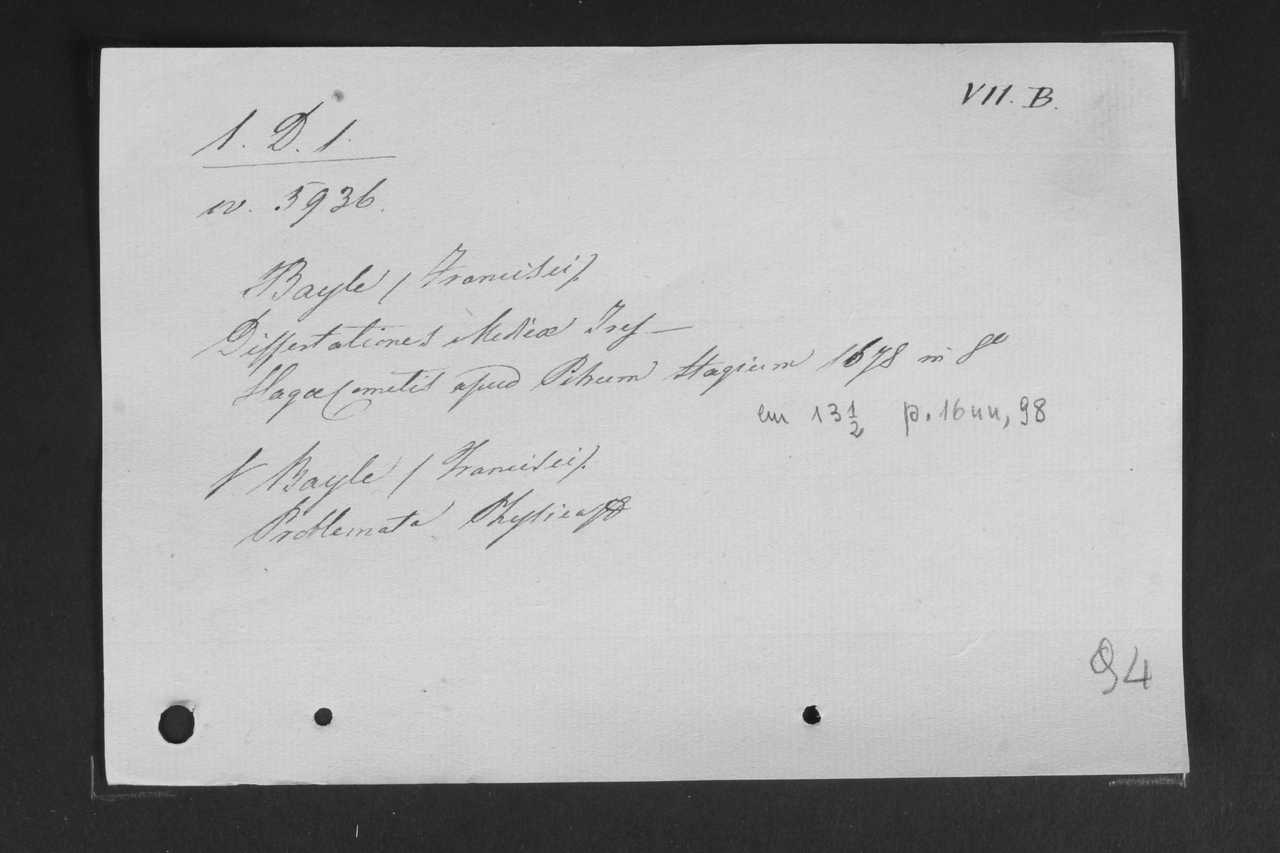 VII. B.
1. D. 1.
w. 5936.
Bayle / Francisci /.
Dissertationes Medicæ Tres —
Hagæ Comitis apud Petrum Hagium 1678 in 8º
cm 13 1/2 p. 16 nn, 98
V Bayle / Francisci /.
Problemata Physica
94